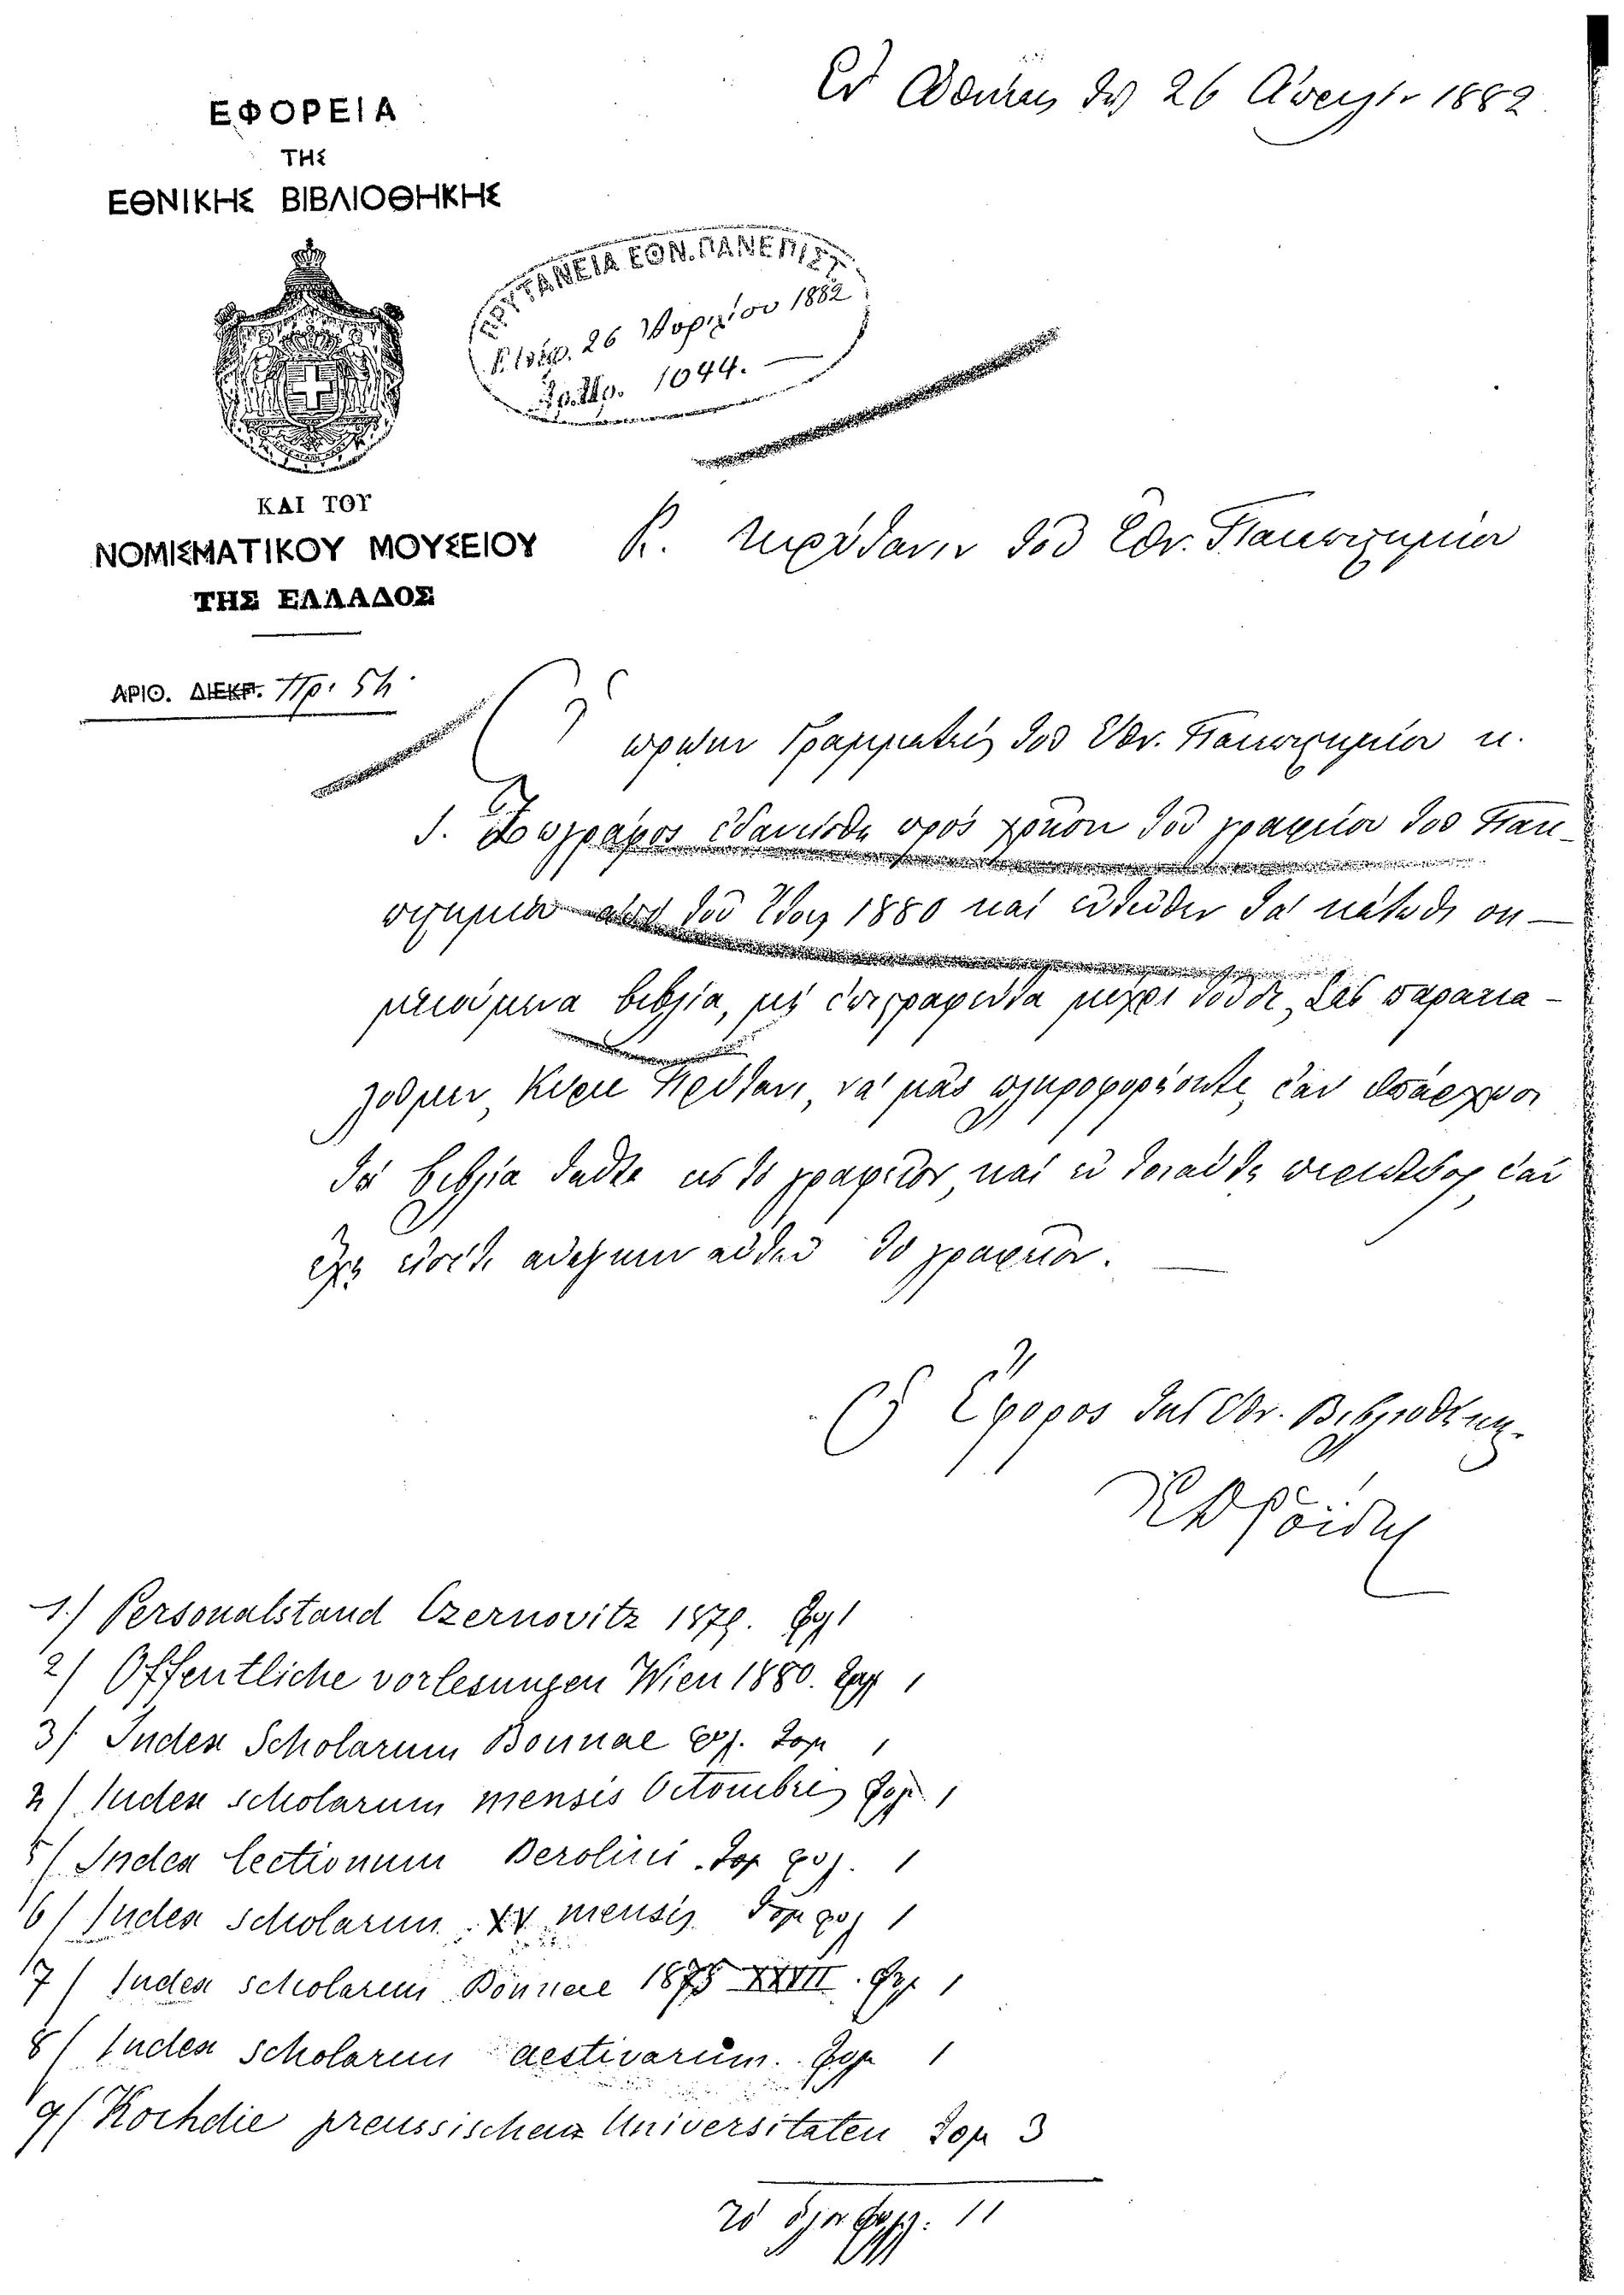 Ἐν Ἀθήναις τῇ 26 1882
ΕΦΟΡΕΙΑ
ΤΗΣ
ΕΘΝΙΚΗΣ ΒΙΒΛΙΟΘΗΚΗΣ
ΠΡΥΤΑΝΕΙΑ ΕΘΝ. ΠΑΝΕΠΙΣΤ.
26 1882
1044.
ΚΑΙ ΤΟΥ
ΝΟΜΙΣΜΑΤΙΚΟΥ ΜΟΥΣΕΙΟΥ
ΤΗΣ ΕΛΛΑΔΟΣ
Κ. Πρύτανιν τοῦ Ἐθν. Πανεπιστημίου
ΑΡΙΘ. ΔΙΕΚΠ. Πρ. 54
Ὁ πρώην Γραμματεὺς τοῦ Ἐθν. Πανεπιστημίου κ.
Ζωγράφος ἐδανείσθη πρὸς χρῆσιν τοῦ γραφείου τοῦ Πανε-
πιστημίου ἀπὸ τοῦ ἔτους 1880 καὶ ἐντεῦθεν τὰ κάτωθι ση-
μειούμενα βιβλία, μὴ ἐπιστραφέντα μέχρι τοῦδε. Σᾶς παρακα-
λοῦμεν, Κύριε Πρύτανι, νὰ μᾶς πληροφορήσητε, ἐὰν ὑπάρχωσι
τὰ βιβλία ταῦτα εἰς τὸ γραφεῖον, καὶ ἐν τοιαύτῃ περιπτώσει ἐὰν
ἔχῃ εἰσέτι ἀνάγκην αὐτῶν τὸ γραφεῖον.
Ὁ Ἔφορος τῆς Ἐθν. Βιβλιοθήκης
Ῥοΐδης
1/ Personalstand Czernovitz 1879. 1
2/ Offentliche vorlesungen Wien 1880. 1
3/ Index Scholarum Bonnae φυλ. Τομ 1
4/ Index scholarum mensis Octombris 1
5/ Index lectionum Berolini Τομ φυλ. 1
6/ Index scholarum XV mensis Τομ φυλ 1
7/ Index scholarum Bonnae 1875 XXVII. 1
8/ Index scholarum aestivarum. 1
9/ Koch die preussischen Universitaten Τομ 3
τὸ ὅλον 11